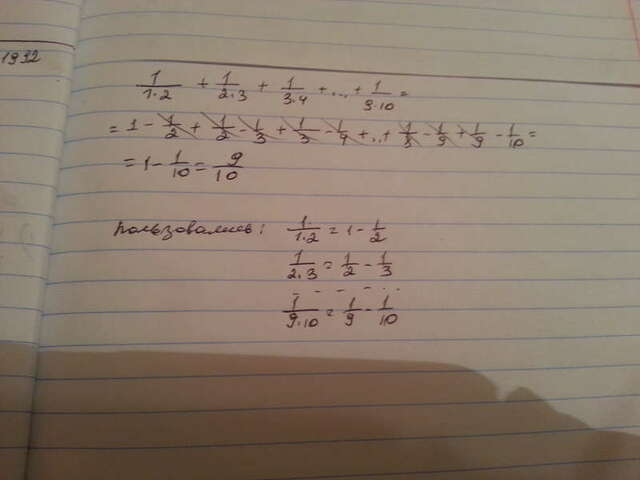 1992
1/1·2 + 1/2·3 + 1/3·4 + ... + 1/9·10 =
= 1 - 1/2 + 1/2 - 1/3 + 1/3 - 1/4 + ... + 1/8 - 1/9 + 1/9 - 1/10 =
= 1 - 1/10 = 9/10
пользовались: 1/1·2 = 1 - 1/2
1/2·3 = 1/2 - 1/3
- - - - ...
1/9·10 = 1/9 - 1/10